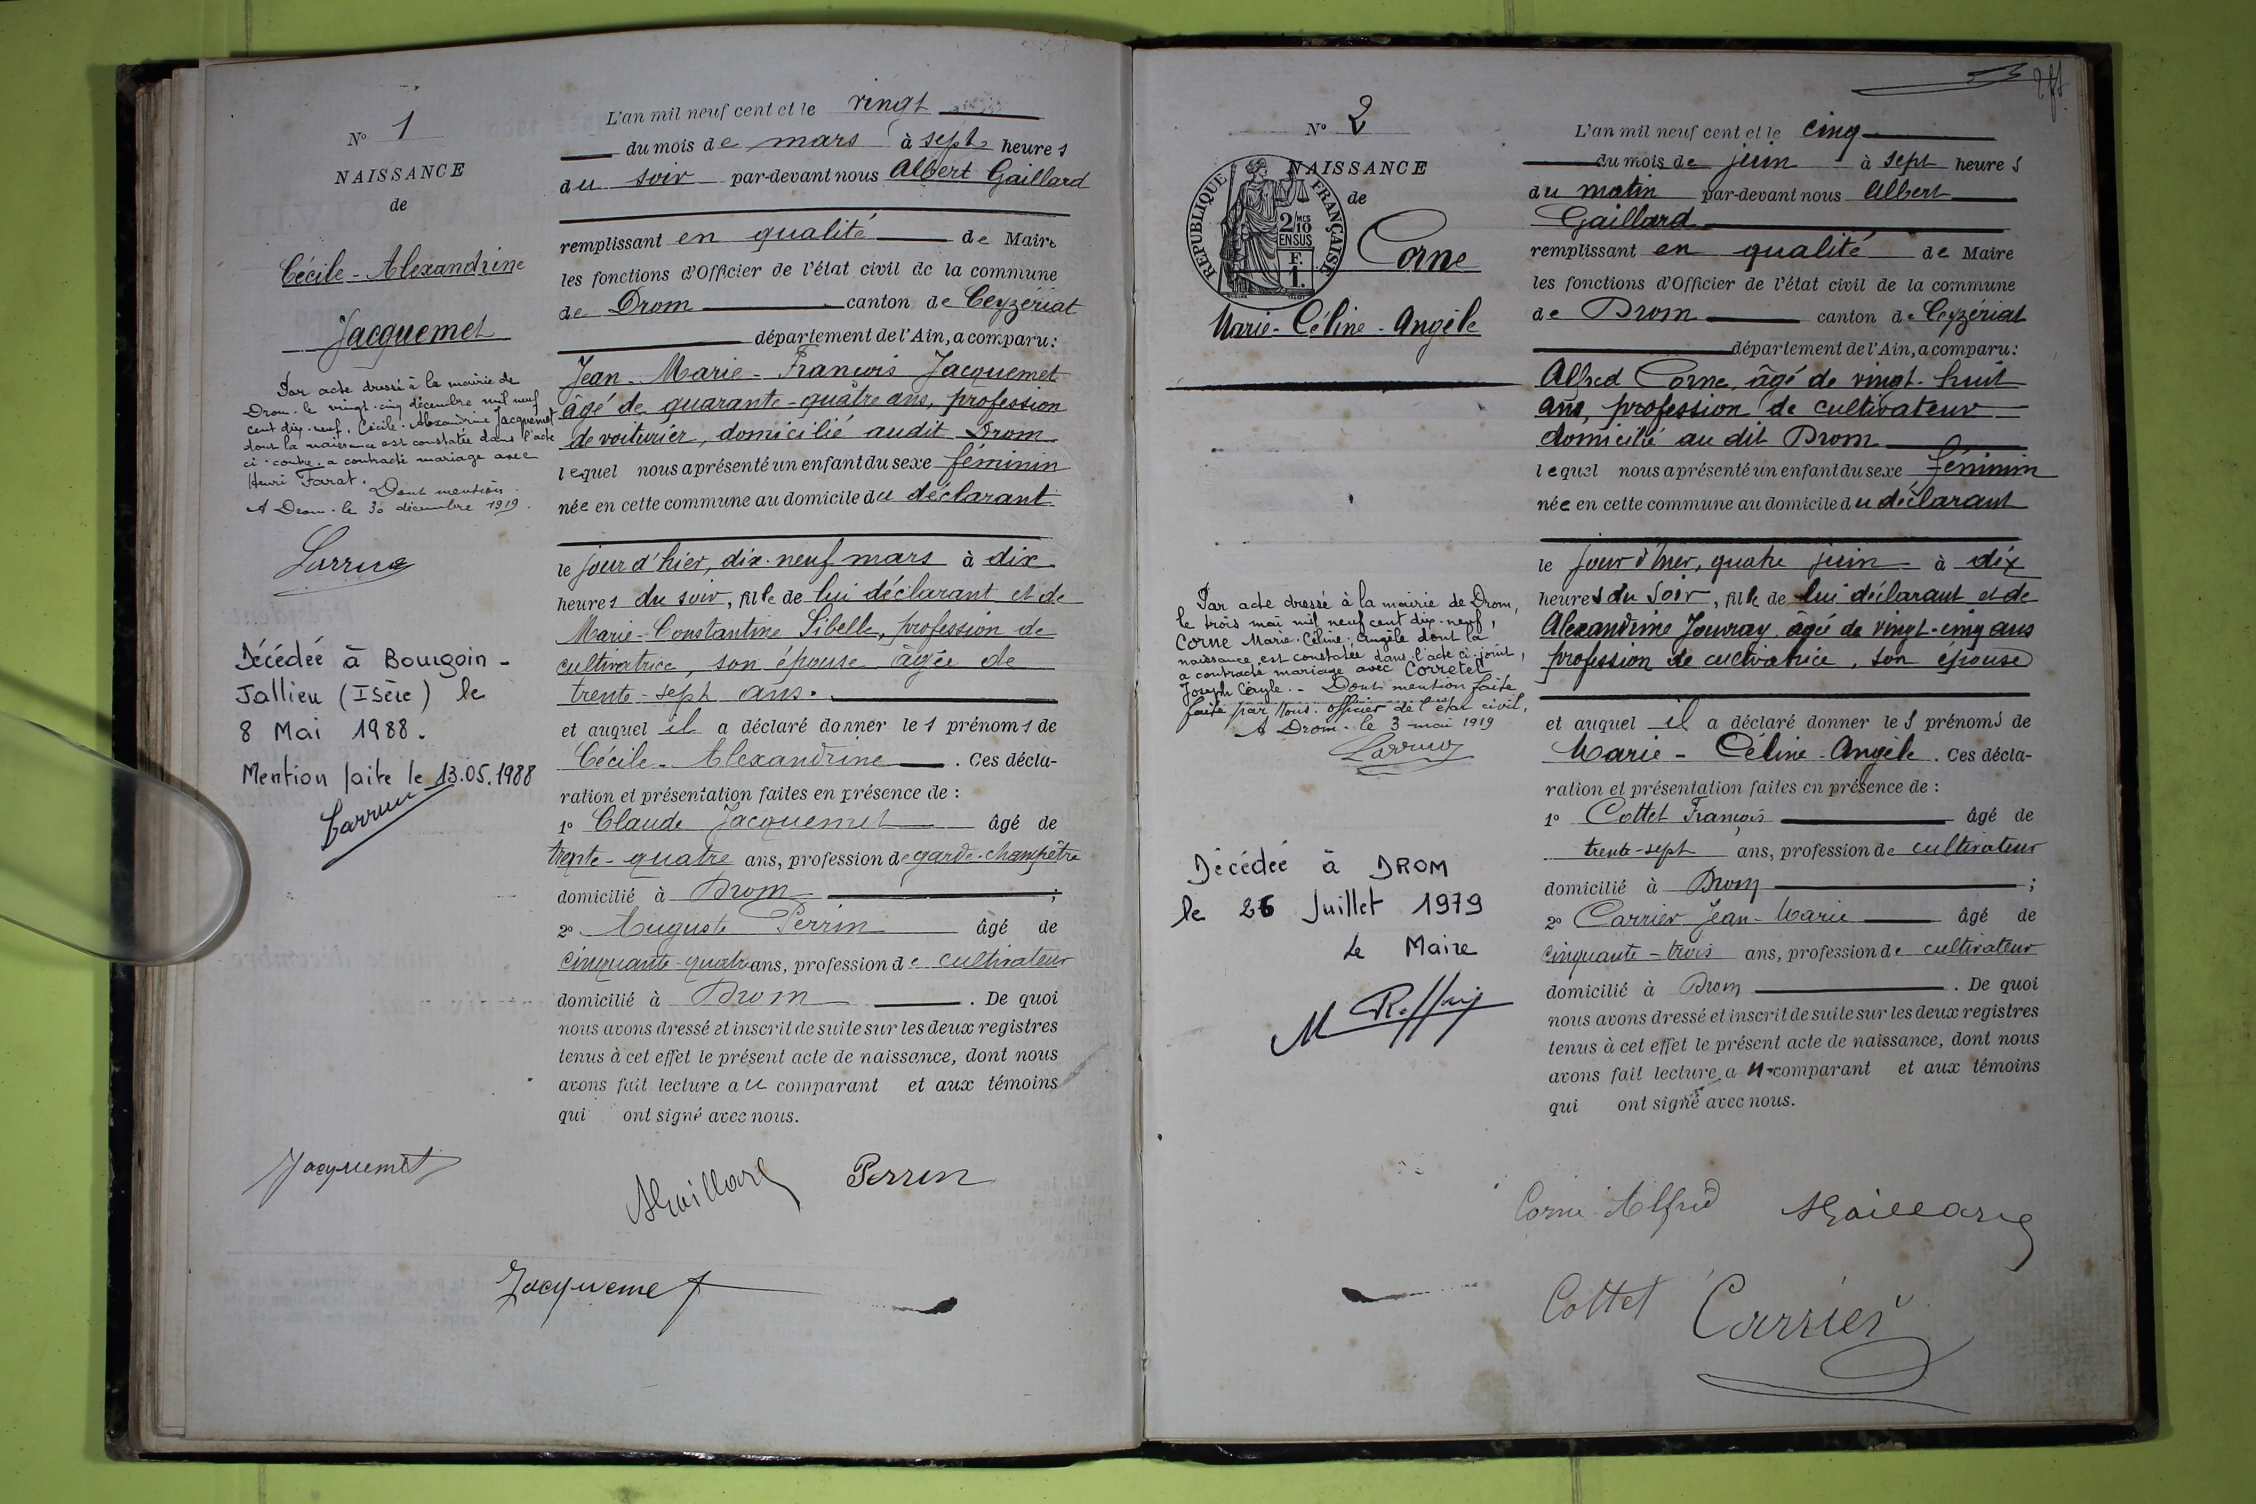 N° 1
NAISSANCE
de
Cécile-Alexandrine
Jacquemet
Par acte dressé à la mairie de
Drom. le vingt-cinq décembre mil neuf
cent dix-neuf, Cécile-Alexandrine Jacquemet
dont la naissance est constatée dans l'acte
ci-contre, a contracté mariage avec
Henri Farat. Dont mention.
A Drom. le 30 décembre 1919.
Décédée à Bourgoin-
Jallieu (Isère) le
8 Mai 1988.
Mention faite le 13.05.1988
L'an mil neuf cent et le vingt
du mois de mars à sept heures
du soir par-devant nous Albert Gaillard
remplissant en qualité de Maire
les fonctions d'Officier de l'état civil de la commune
de Drom canton de Ceyzériat
département de l'Ain, a comparu:
Jean-Marie-François Jacquemet
âgé de quarante-quatre ans, profession
de voiturier, domicilié audit Drom
lequel nous a présenté un enfant du sexe féminin
née en cette commune au domicile du déclarant
le jour d'hier, dix-neuf mars à dix
heures du soir, fille de lui déclarant et de
Marie-Constantine Sibelle, profession de
cultivatrice, son épouse âgée de
trente-sept ans.
et auquel il a déclaré donner les prénoms de
Cécile-Alexandrine. Ces décla-
ration et présentation faites en présence de :
1° Claude Jacquemet âgé de
trente-quatre ans, profession de garde-champêtre
domicilié à Drom ;
2° Auguste Perrin âgé de
cinquante-quatre ans, profession de cultivateur
domicilié à Drom. De quoi
nous avons dressé et inscrit de suite sur les deux registres
tenus à cet effet le présent acte de naissance, dont nous
avons fait lecture au comparant et aux témoins
qui ont signé avec nous.
Jacquemet
AGaillard
Perrin
Jacquemet
N° 2
NAISSANCE
de
RÉPUBLIQUE FRANÇAISE
2/10 EN SUS
F.
1.
Corne
Marie-Céline-Angèle
Par acte dressé à la mairie de Drom,
le trois mai mil neuf cent dix-neuf,
Corne Marie-Céline-Angèle dont la
naissance est constatée dans l'acte ci-joint,
a contracté mariage avec Corretel
Joseph . - Dont mention faite
faite par nous. officier de l'état civil,
A Drom. le 3 mai 1919
Décédée à DROM
le 26 Juillet 1979
Le Maire
L'an mil neuf cent et le cinq
du mois de juin à sept heures
du matin par-devant nous Albert
Gaillard
remplissant en qualité de Maire
les fonctions d'Officier de l'état civil de la commune
de Drom canton de Ceyzériat
département de l'Ain, a comparu:
Alfred Corne, âgé de vingt-huit
ans, profession de cultivateur
domicilié au dit Drom
lequel nous a présenté un enfant du sexe féminin
née en cette commune au domicile du déclarant
le jour d'hier, quatre juin à dix
heures du soir, fille de lui déclarant et de
Alexandrine Jouvray âgée de vingt-cinq ans
profession de cultivatrice, son épouse
et auquel il a déclaré donner les prénoms de
Marie-Céline-Angèle. Ces décla-
ration et présentation faites en présence de :
1° Cottet François âgé de
trente-sept ans, profession de cultivateur
domicilié à Drom ;
2° Carrier Jean-Marie âgé de
cinquante-trois ans, profession de cultivateur
domicilié à Drom. De quoi
nous avons dressé et inscrit de suite sur les deux registres
tenus à cet effet le présent acte de naissance, dont nous
avons fait lecture au comparant et aux témoins
qui ont signé avec nous.
Corne Alfred
AGaillard
Cottet
Carrier